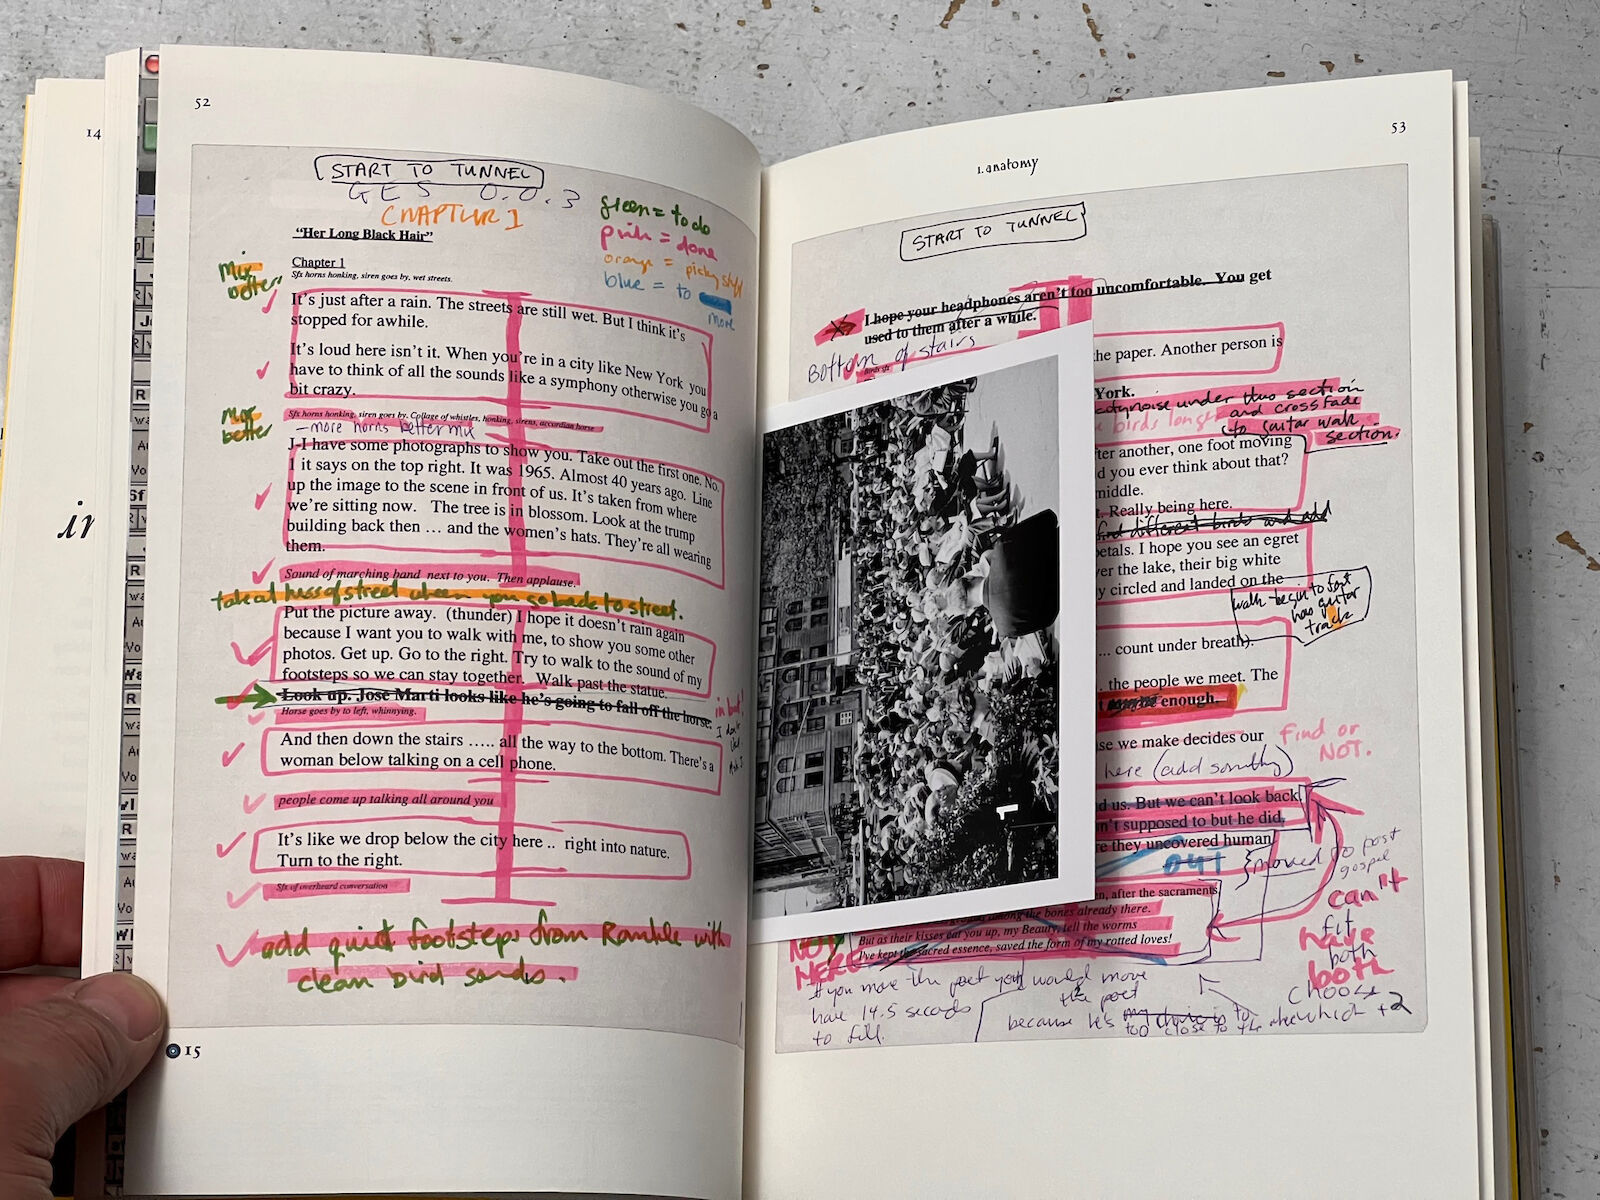 14
52
START TO TUNNEL
GES 0.0.3
CHAPTUR 1
green = to do
pink = done
orange = picky stuff
blue = to
more
"Her Long Black Hair"
Chapter 1
Sfx horns honking, siren goes by, wet streets.
Mix better
It's just after a rain. The streets are still wet. But I think it's
stopped for awhile.
It's loud here isn't it. When you're in a city like New York you
have to think of all the sounds like a symphony otherwise you go a
bit crazy.
Mix better
Sfx horns honking, siren goes by. Collage of whistles, honking, sirens, accordian horse
– more horns better mix
J-I have some photographs to show you. Take out the first one. No.
1 it says on the top right. It was 1965. Almost 40 years ago. Line
up the image to the scene in front of us. It's taken from where
we're sitting now. The tree is in blossom. Look at the trump
building back then … and the women's hats. They're all wearing
them.
Sound of marching band next to you. Then applause.
take out hiss of street when you go back to street.
Put the picture away. (thunder) I hope it doesn't rain again
because I want you to walk with me, to show you some other
photos. Get up. Go to the right. Try to walk to the sound of my
footsteps so we can stay together. Walk past the statue.
Look up. Jose Marti looks like he's going to fall off the horse.
in but!
Horse goes by to left, whinnying.
And then down the stairs ….. all the way to the bottom. There's a
woman below talking on a cell phone.
people come up talking all around you
It's like we drop below the city here .. right into nature.
Turn to the right.
Sfx of overheard conversation
add quiet footsteps from Ramble with
clean bird sounds.
15
53
1. anatomy
START TO TUNNEL
I hope your headphones aren't too uncomfortable. You get
used to them after a while.
Bottom of stairs
Birds sfx
the paper. Another person is
York.
citynoise under this section
and crossfade
birds longer
to guitar walk
section.
ter another, one foot moving
d you ever think about that?
middle.
. Really being here.
find different birds and add
petals. I hope you see an egret
ver the lake, their big white
y circled and landed on the
walk begin to fort
has guitar
track
… count under breath).
. the people we meet. The
t enough.
se we make decides our
find or
NOT.
here (add somthy)
d us. But we can't look back
n't supposed to but he did,
re they uncovered human
out
moved to post
gospel
n, after the sacraments
among the bones already there.
But as their kisses eat you up, my Beauty, tell the worms
I've kept the sacred essence, saved the form of my rotted loves!
NOT
HERE
can't
fit
have
both
both
choose
which
If you move the poet you would
have 14.5 seconds
to fill.
move
the poet
because he's
too close to the